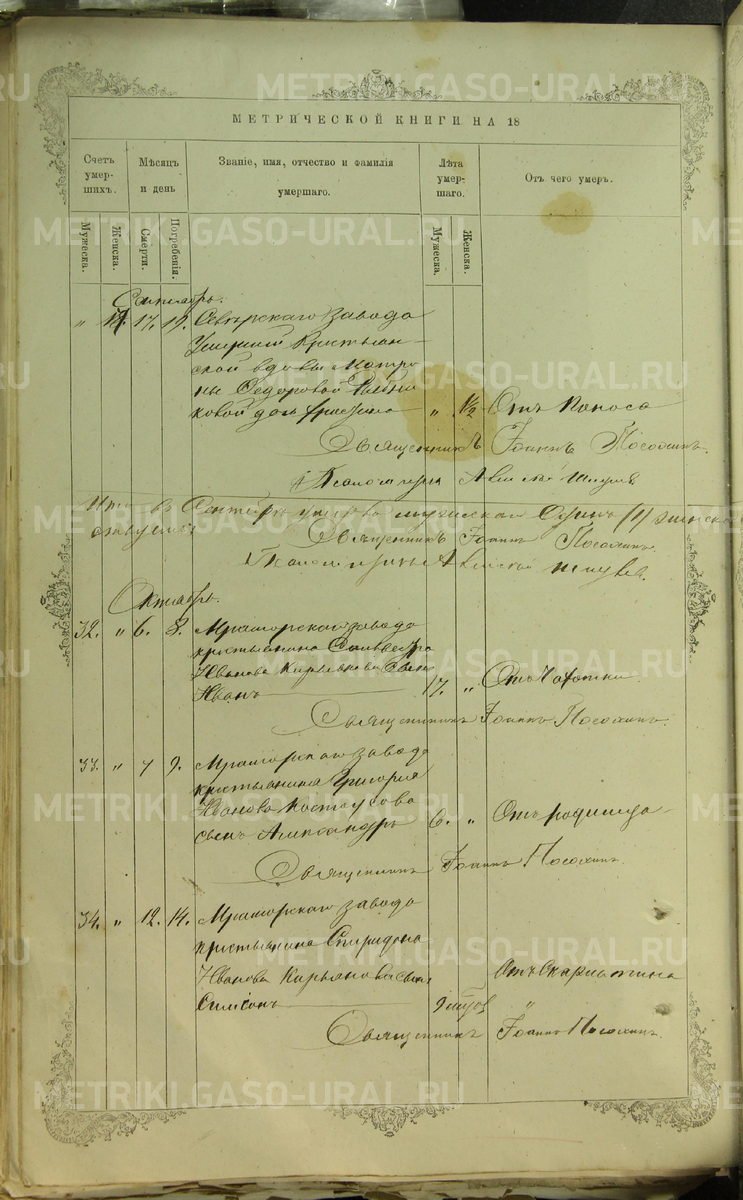 МЕТРИЧЕСКОЙ КНИГИ НА 18
Счетъ умер- шихъ.
Мѣсяцъ и день
Званіе, имя, отчество и фамилія умершаго.
Лѣта умер- шаго.
Отъ чего умеръ.
Мужеска. Женска. Смерти. Погребенія. Мужеска. Женска.
Сентябрь.
" 17. 19. Сѣверскаго завода
умершей крестьян-
ской вдовы Матро-
ны Ѳедоровой
ковой дочь " 1/2 Отъ поноса
Священникъ Іоаннъ Посохинъ.
Псаломщикъ
Итого въ Сентябрѣ умерло мужескаго Одинъ (1) женска
Священникъ Іоаннъ Посохинъ.
Октябрь.
32. " 6. 8. Мраморскаго завода
крестьянина Сильвестра
Иванова Кирьянова сынъ
Иванъ 17. " Отъ чахотки
Священникъ Іоаннъ Посохинъ.
33. " 7 9. Мраморскаго завода
крестьянина Григорія
Иванова Костоусова
сынъ Александръ 6. " Отъ родимца
Священникъ Іоаннъ Посохинъ.
34. " 12. 14. Мраморскаго завода
крестьянина Спиридона
Иванова Кирьянова сынъ
Симеонъ 9 Отъ Скарлатина
Священникъ Іоаннъ Посохинъ.
METRIKI.GASO-URAL.RU